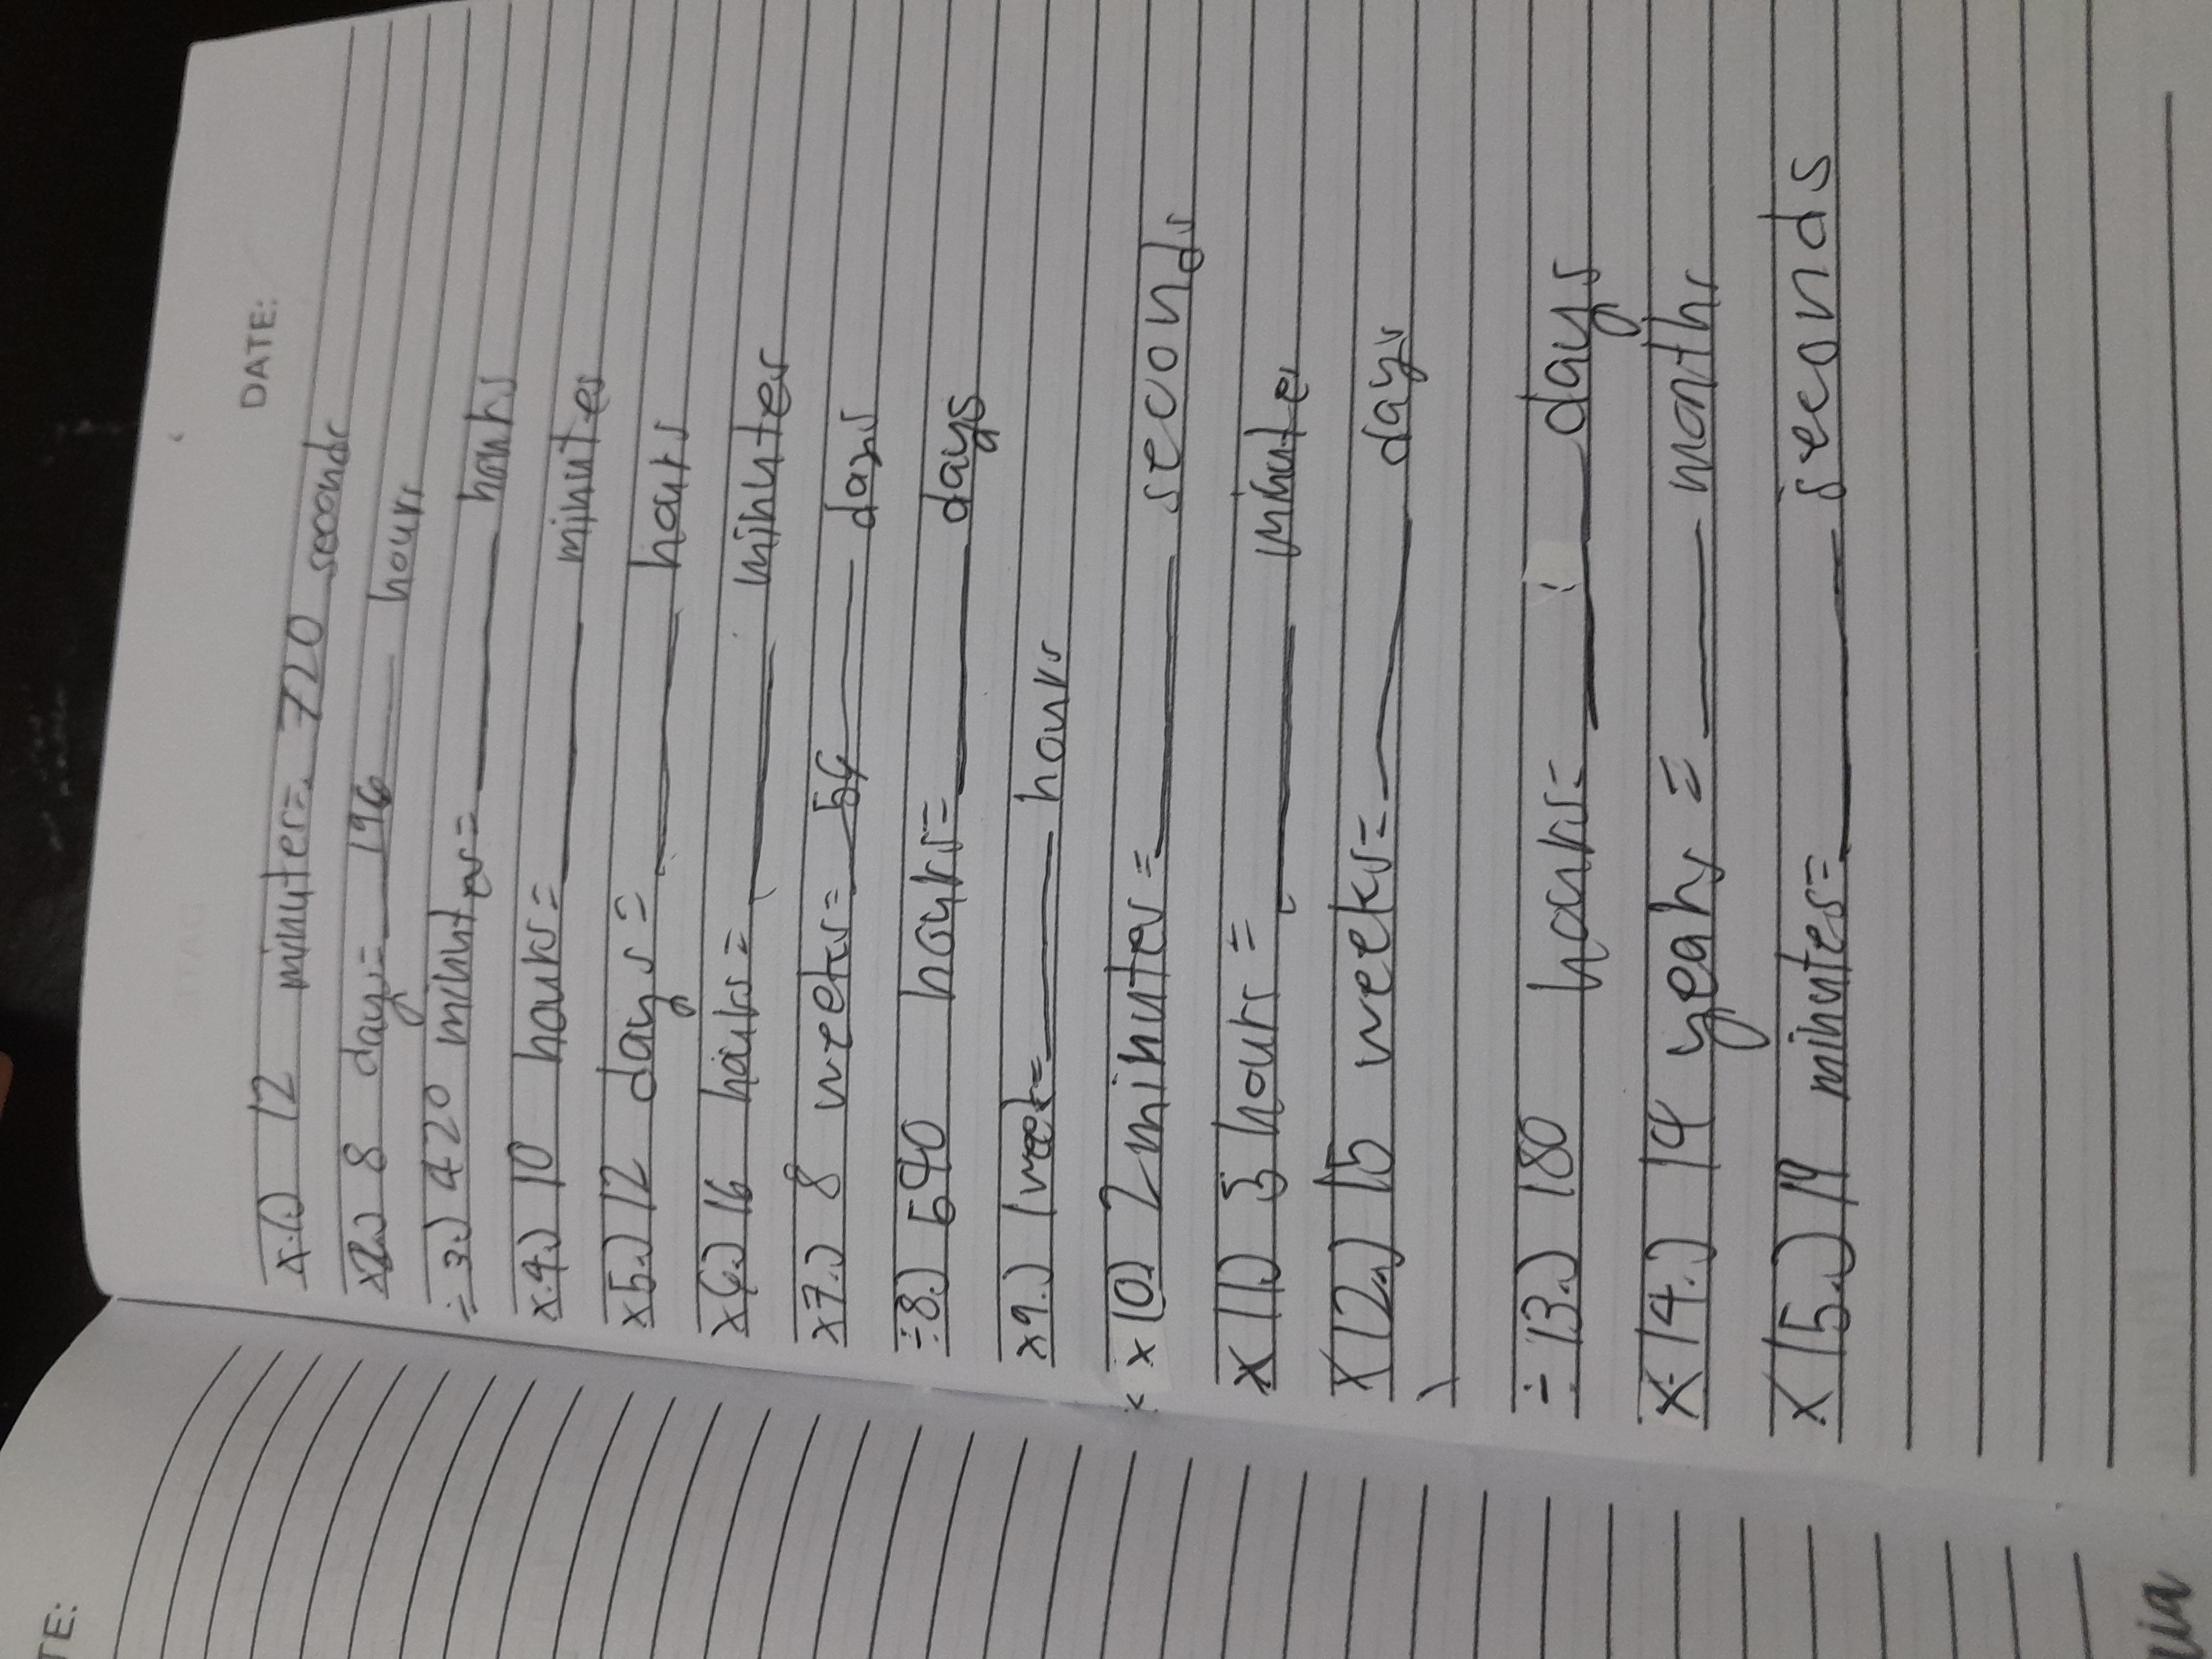 TE:
DATE:
x 1.) 12 minutes= 720 seconds
x2.) 8 days= 196 hours
÷ 3.) 420 minutes= ______ hours
x 4.) 10 hours= ______ minutes
x5.) 12 days = ______ hours
x6.) 16 hours= ______ minutes
x7.) 8 weeks= 56 days
÷8.) 540 hours= ______ days
x9.) 1 week= ______ hours
x 10) 2 minutes = ______ seconds
x 11.) hours = ______ minutes
x 12.) 15 weeks= ______ days
÷ 13.) 180 hours= ______ days
x 14.) 14 years = ______ months
x 15.) 19 minutes= ______ seconds